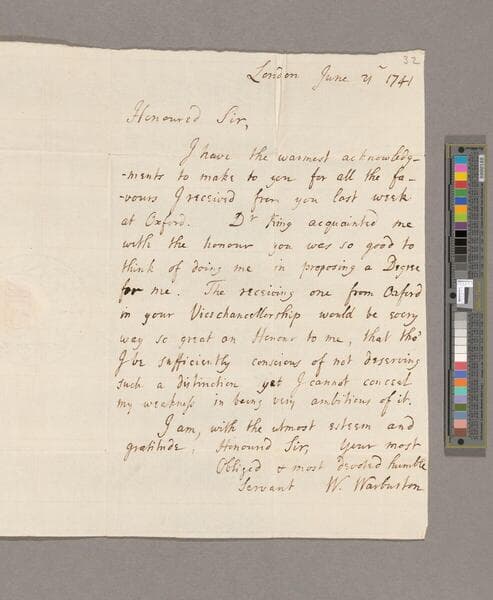 32
London June 21st 1741
Honoured Sir,
I have the warmest acknowledg-
-ments to make to you for all the fa-
-vours I received from you last week
at Oxford. Dr King acquainted me
with the honour you was so good to
think of doing me in proposing a Degree
for me. The receiving one from Oxford
in your Vicechancellorship would be every
way so great an Honour to me, that tho'
I be sufficiently conscious of not deserving
such a distinction yet I cannot conceal
my weakness in being very ambitious of it.
I am, with the utmost esteem and
gratitude, Honoured Sir, Your most
Obliged & most devoted humble
Servant W. Warburton